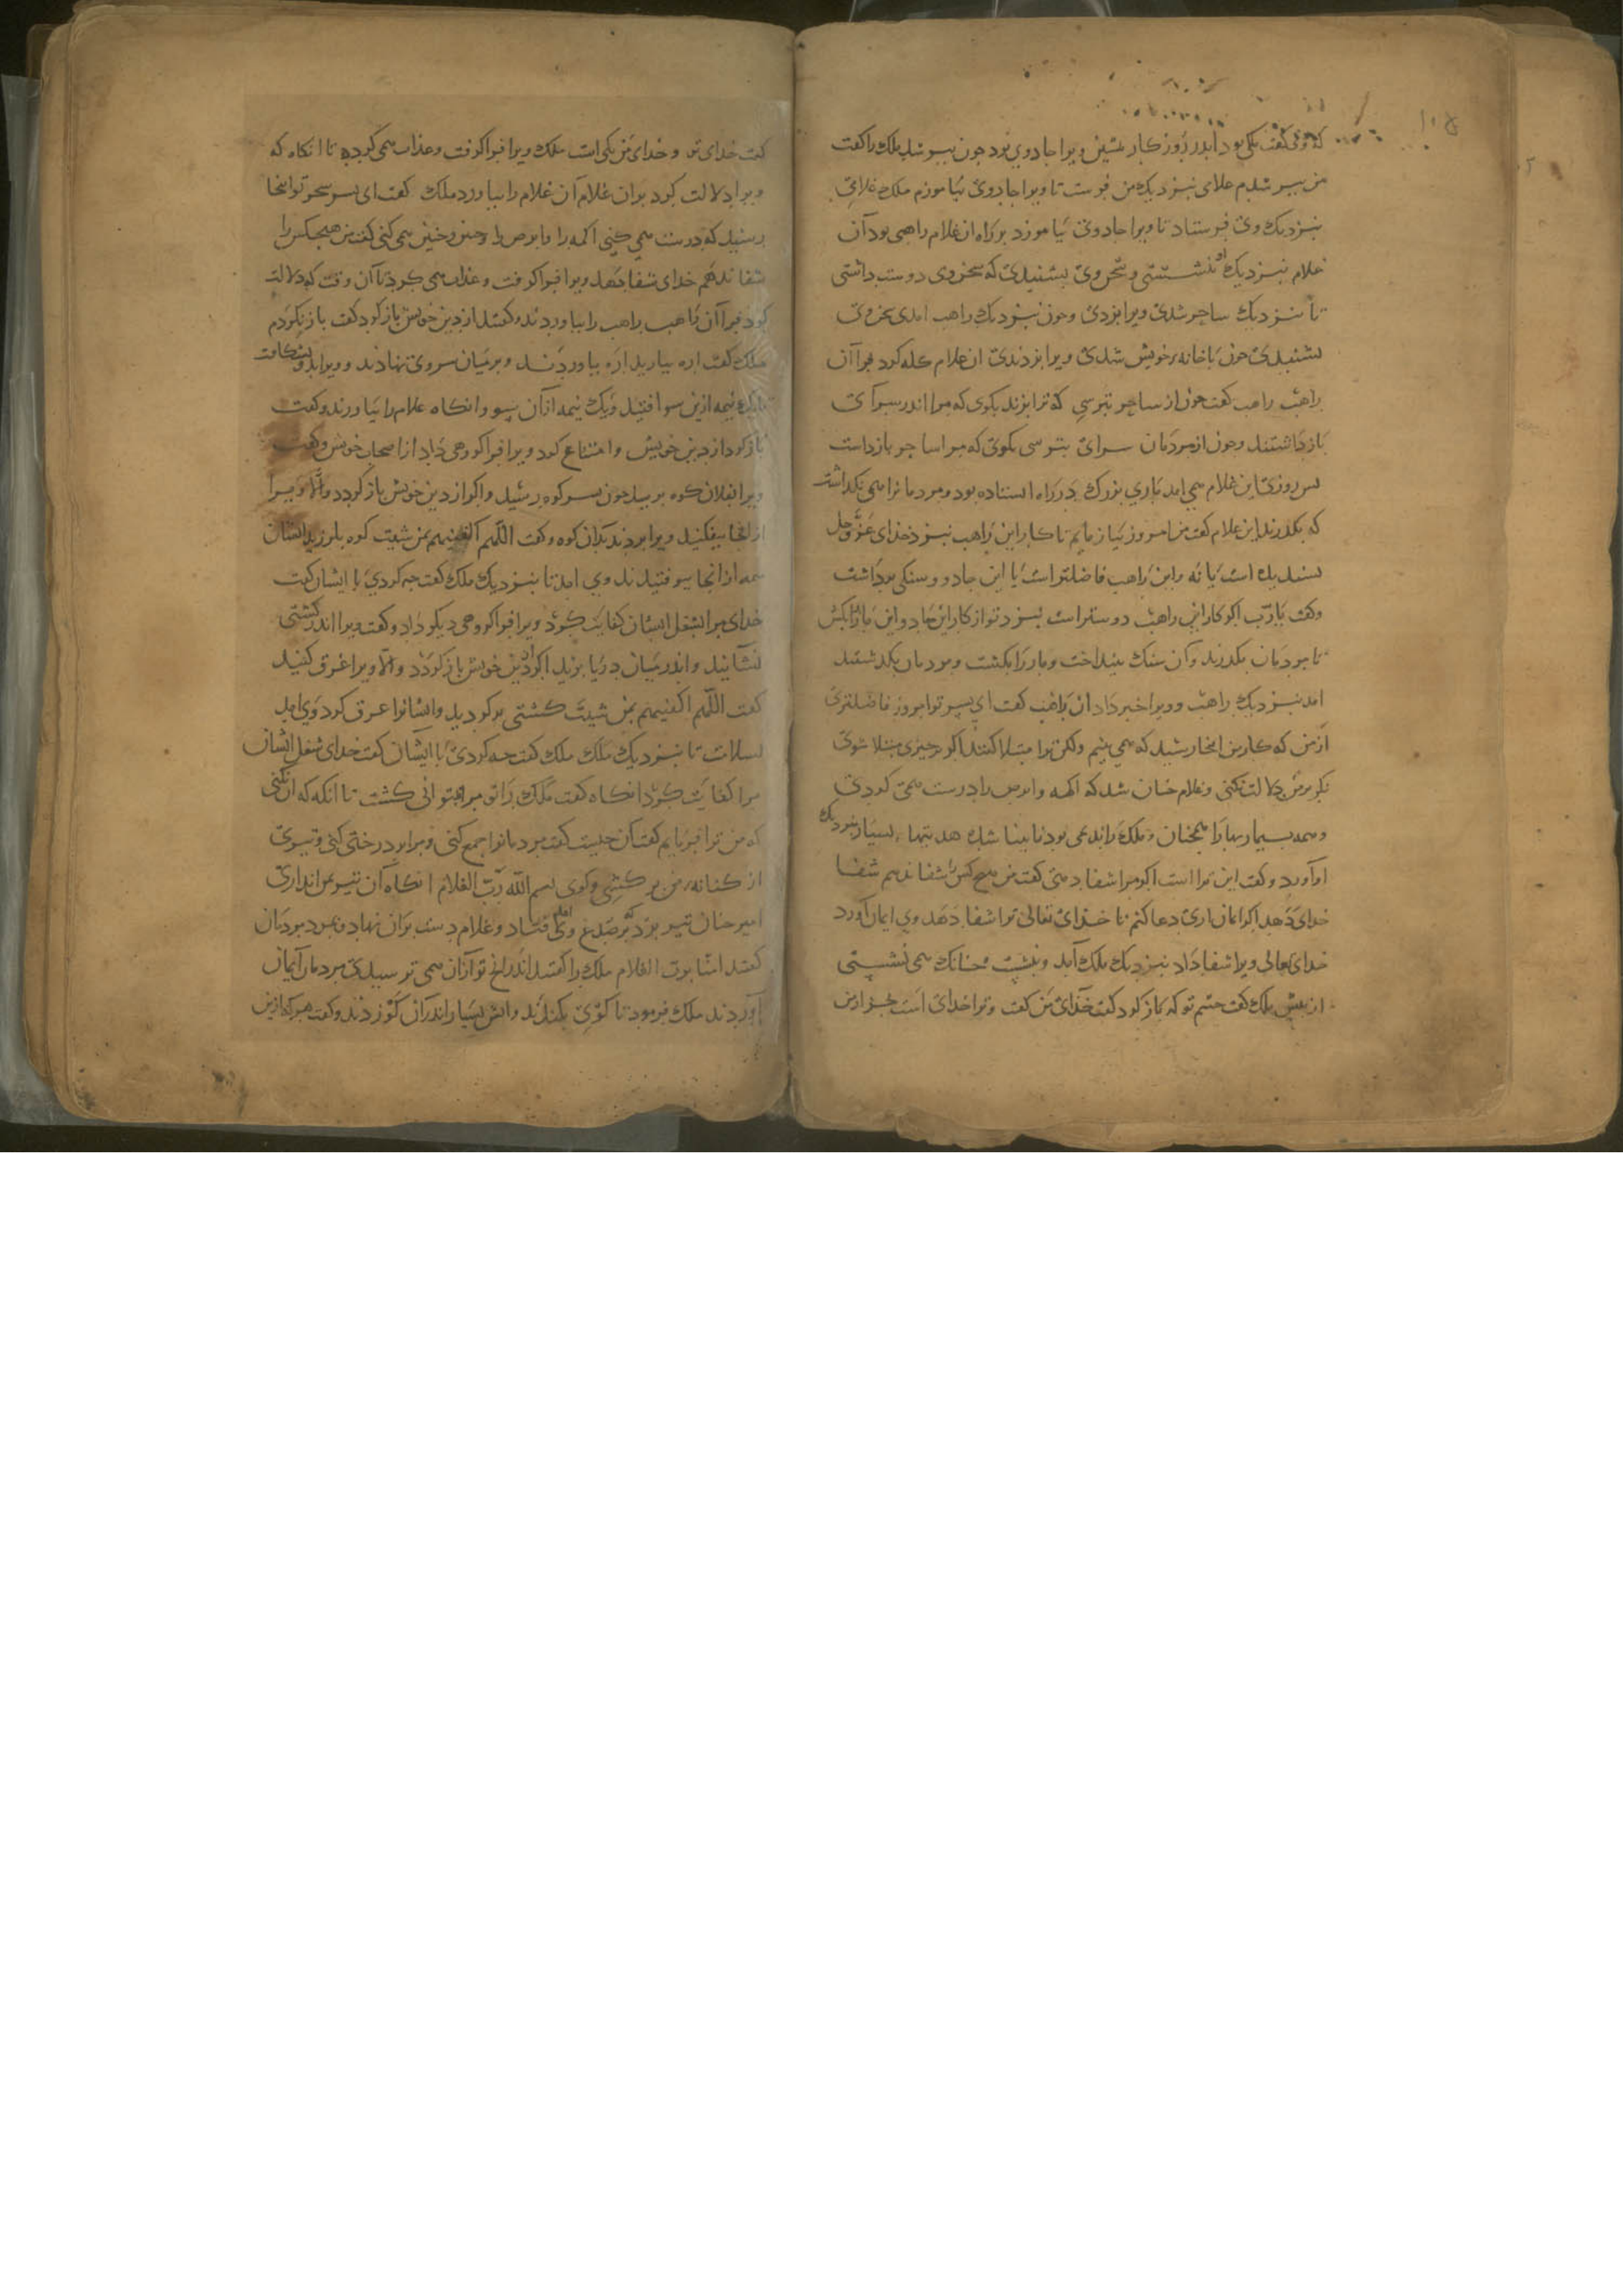 که وی گفت ملکی بود اندر روزکار پیشین ویرا جادوی بود چون پیر شد ملک را گفت
من پیر شدم غلامی بنزدیک من فرست تا ویرا جادوی بیاموزم ملک غلامی
بنزدیک وی فرستاد تا ویرا جادوی بیاموزد بر راه ان غلام راهبی بود آن
غلام بنزدیک او بنشستی و سخن وی بشنیدی که سخن وی دوست داشتی
تا بنزدیک ساحر شدی ویرا بزدی و چون بنزدیک راهب امدی سخن وی
بشنیدی چون باخانه خویش شدی ویرا بزدندی ان غلام کله کرد فرا آن
راهب راهب گفت چون از ساحر بترسی که ترا بزند بکوی که مرا اندر سرای
بازداشتند و چون از مردمان سرای بترسی بکوی که مرا ساحر بازداشت
پس روزی این غلام همی امد ماری بزرک در راه استاده بود و مردمانرا همی نکذاشت
که بکذرند این غلام گفت من امروز بیازمایم تا کار این راهب بنزد خدای عز و جل
پسندیده است یا نه و این راهب فاضلتر است یا این جادو و سنکی برداشت
و گفت یا رب اکر کار این راهب دوستر است بنزد تو از کار این جادو این مار را بکش
تا مردمان بکذرند و آن سنک بینداخت و مار را بکشت و مردمان بکذشتند
امد بنزدیک راهب و ویرا خبر داد ان راهب گفت ای پسر تو امروز فاضلتری
از من که کار من انجا رسید که همی بینم ولکن ترا مبتلا کنند اکر بچیزی مبتلا شوی
نکر بر من دلالت نکنی و غلام چنان شد که اکمه و ابرص را درست همی کردی
و همه بیماریها را همچنان و ملک را ندیمی بود نابینا شده هدیتها بسیار بنزدیک
او آورد و گفت این ترا است اکر مرا شفا دهی گفت من هیچ کس را شفا ندهم شفا
خدای دهد اکر ایمان اری دعا کنم تا خدای تعالی ترا شفا دهد وی ایمان آورد
خدای تعالی ویرا شفا داد بنزدیک ملک آمد و بنشست چنانک همی نشستی
از پیش ملک گفت چشم تو که باز کرد گفت خدای من گفت و ترا خدای است بجز از من
گفت خدای تو و خدای من یکی است ملک ویرا فرا کرفت و عذاب همی کرد تا انکاه که
ویرا دلالت کرد بران غلام آن غلام را بیاورد ملک گفت ای پسر سحر تو انجا
رسید که درست همی کنی اکمه را و ابرص را و چنین و چنین همی کنی گفت من هیچکس را
شفا ندهم خدای شفا دهد ویرا فرا کرفت و عذاب همی کرد تا آن وقت که دلالت
کرد فرا آن راهب راهب را بیاوردند و گفتند از دین خویش باز کرد گفت باز نکردم
ملک گفت اره بیارید اره بیاوردند و بر میان سر وی نهادند و ویرا بدو بشکافت
تا یک نیمه ازین سو افتید و یک نیمه از آن سو و انکاه غلام را بیاورند و گفت
باز کرد از دین خویش و امتناع کرد ویرا فرا کروهی داد از اصحاب خویش و گفت
ویرا بفلان کوه برید چون بسر کوه رسید و اکر از دین خویش باز کردد و الا ویرا
از انجا بیفکنید ویرا بردند بدان کوه و گفت اللهم اکفنیهم بمن شئت کوه بلرزید ایشان
همه از انجا بیوفتیدند وی امد تا بنزدیک ملک گفت چه کردی با ایشان گفت
خدای مرا شغل ایشان کفایت کرد ویرا فرا کروهی دیکر داد و گفت ویرا اندر کشتی
نشانید و اندر میان دریا برید اکر از دین خویش باز کردد و الا ویرا غرق کنید
گفت اللهم اکفنیهم بمن شئت کشتی بر کردید و ایشانرا غرق کرد وی امد
بسلامت تا بنزدیک ملک ملک گفت چه کردی با ایشان گفت خدای شغل ایشان
مرا کفایت کرد انکاه گفت ملک را تو مرا نتوانی کشت تا انکه که آن کنی
که من ترا فرمایم گفت آن چیست گفت مردمانرا جمع کنی و مرا بر درختی کنی و تیری
از کنانه من بر کشی و کوی بسم الله رب الغلام انکاه آن تیر بمن اندازی
امیر چنان تیر بزد بر صدغ وی افتاد و غلام دست بران نهاد و بمرد مردمان
گفتند امنا برب الغلام ملک را گفتند اندرانچ تو از ان همی ترسیدی مردمان ایمان
آوردند ملک فرمود تا کوی بکندند و اتش بسیار اندر ان کو زدند و گفت هر که ازین